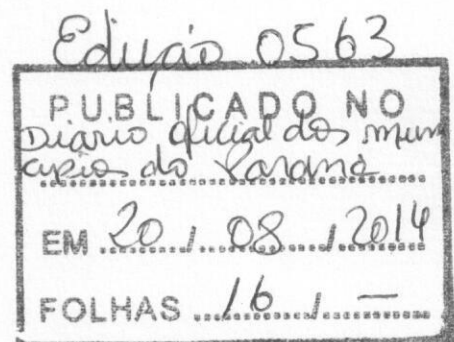 Edição 0563
PUBLICADO NO
Diário oficial dos muni
cípios do Paraná
EM 20 / 08 / 2014
FOLHAS 16 / —